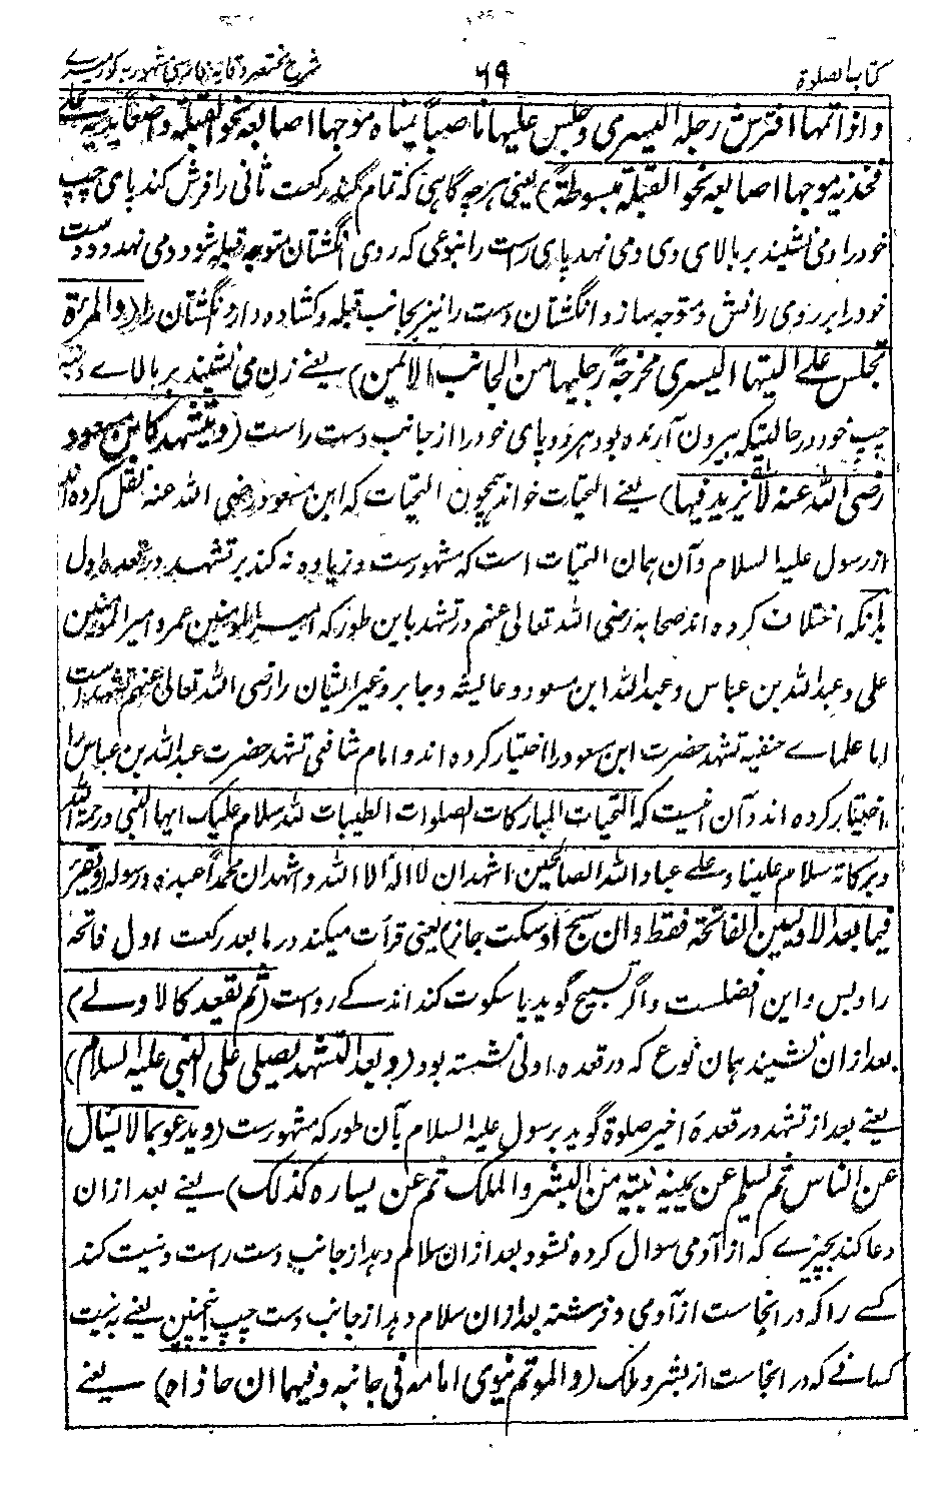 کتاب الصلوة ۶۹ شرح مختصر وقایه فارسی مشهور به کور میری
واذا اتمها افترش رجله الیسری وجلس علیها ناصباً یمناه موجها اصابعه نحو القبلة واضعاً یدیه علی
فخذیه موجها اصابعه نحو القبلة مبسوطة) یعنی هرچه گاهی که تمام کند رکعت ثانی را فرش کند پای چپ
خود را و می نشیند بر بالای وی و می نهد پای راست را بنوعی که روی انگشتان متوجه قبله شود و می نهد دو دست
خود را بر روی رانش و متوجه سازد انگشتان دست را نیز بجانب قبله و کشاده دارد انگشتان را (والمرءة
تجلس علے الیتها الیسری مخرجة رجلیها من الجانب الایمن) یعنے زن می نشیند بر بالاے دنبه
چپ خود در حالتیکه بیرون آرنده بود هر دو پای خود را از جانب دست راست (ویتشهد کابن مسعود
رضی الله عنه لا یزید فیها) یعنے التحیات خواند همچون التحیات که ابن مسعود رضی الله عنه نقل کرده اند
از رسول علیه السلام و آن همان التحیات است که مشهورست و زیاده نه کند بر تشهد در قعده اول
بدانکه اختلاف کرده اند صحابه رضی الله تعالی عنهم در تشهد باین طور که امیر المومنین عمر و امیر المومنین
علی و عبدالله بن عباس و عبدالله ابن مسعود و عایشه و جابر و غیر ایشان را رضی الله تعالی عنهم تشهدست
اما علماے حنفیه تشهد حضرت ابن مسعود را اختیار کرده اند و امام شافعی تشهد حضرت عبدالله بن عباس را
اختیار کرده اند و آن اینست که التحیات المبارکات الصلوات الطیبات لله سلام علیک ایها النبی ورحمة الله
وبرکاته سلام علینا وعلے عباد الله الصالحین اشهد ان لا اله الا الله واشهد ان محمداً عبده ورسوله (ویقرء
فیما بعد الاولیین الفاتحة فقط وان سبح او سکت جاز) یعنی قرآت میکند در ما بعد رکعت اول فاتحه
را و بس و این افضلست و اگر تسبیح گوید یا سکوت کند اندکے رواست (ثم یقعد کالاولے)
بعد ازان نشیند بهمان نوع که در قعده اولی نشسته بود (وبعد التشهد یصلی علی النبی علیه السلام)
یعنے بعد از تشهد در قعدۀ اخیر صلوة گوید بر رسول علیه السلام بآن طور که مشهورست (ویدعو بما لا یسأل
عن الناس ثم یسلم عن یمینه بنیته من البشر والملک ثم عن یساره کذلک) یعنے بعد ازان
دعا کند بچیزے که از آدمی سوال کرده نشود بعد ازان سلام دهد از جانب دست راست و نیت کند
کسے را که در انجاست از آدمی و فرشته بعد ازان سلام دهد از جانب دست چپ همچنین یعنے به نیت
کسانے که در انجاست از بشر و ملک (والموتم ینوی امامه فی جانبه وفیهما ان حاذاه) یعنے